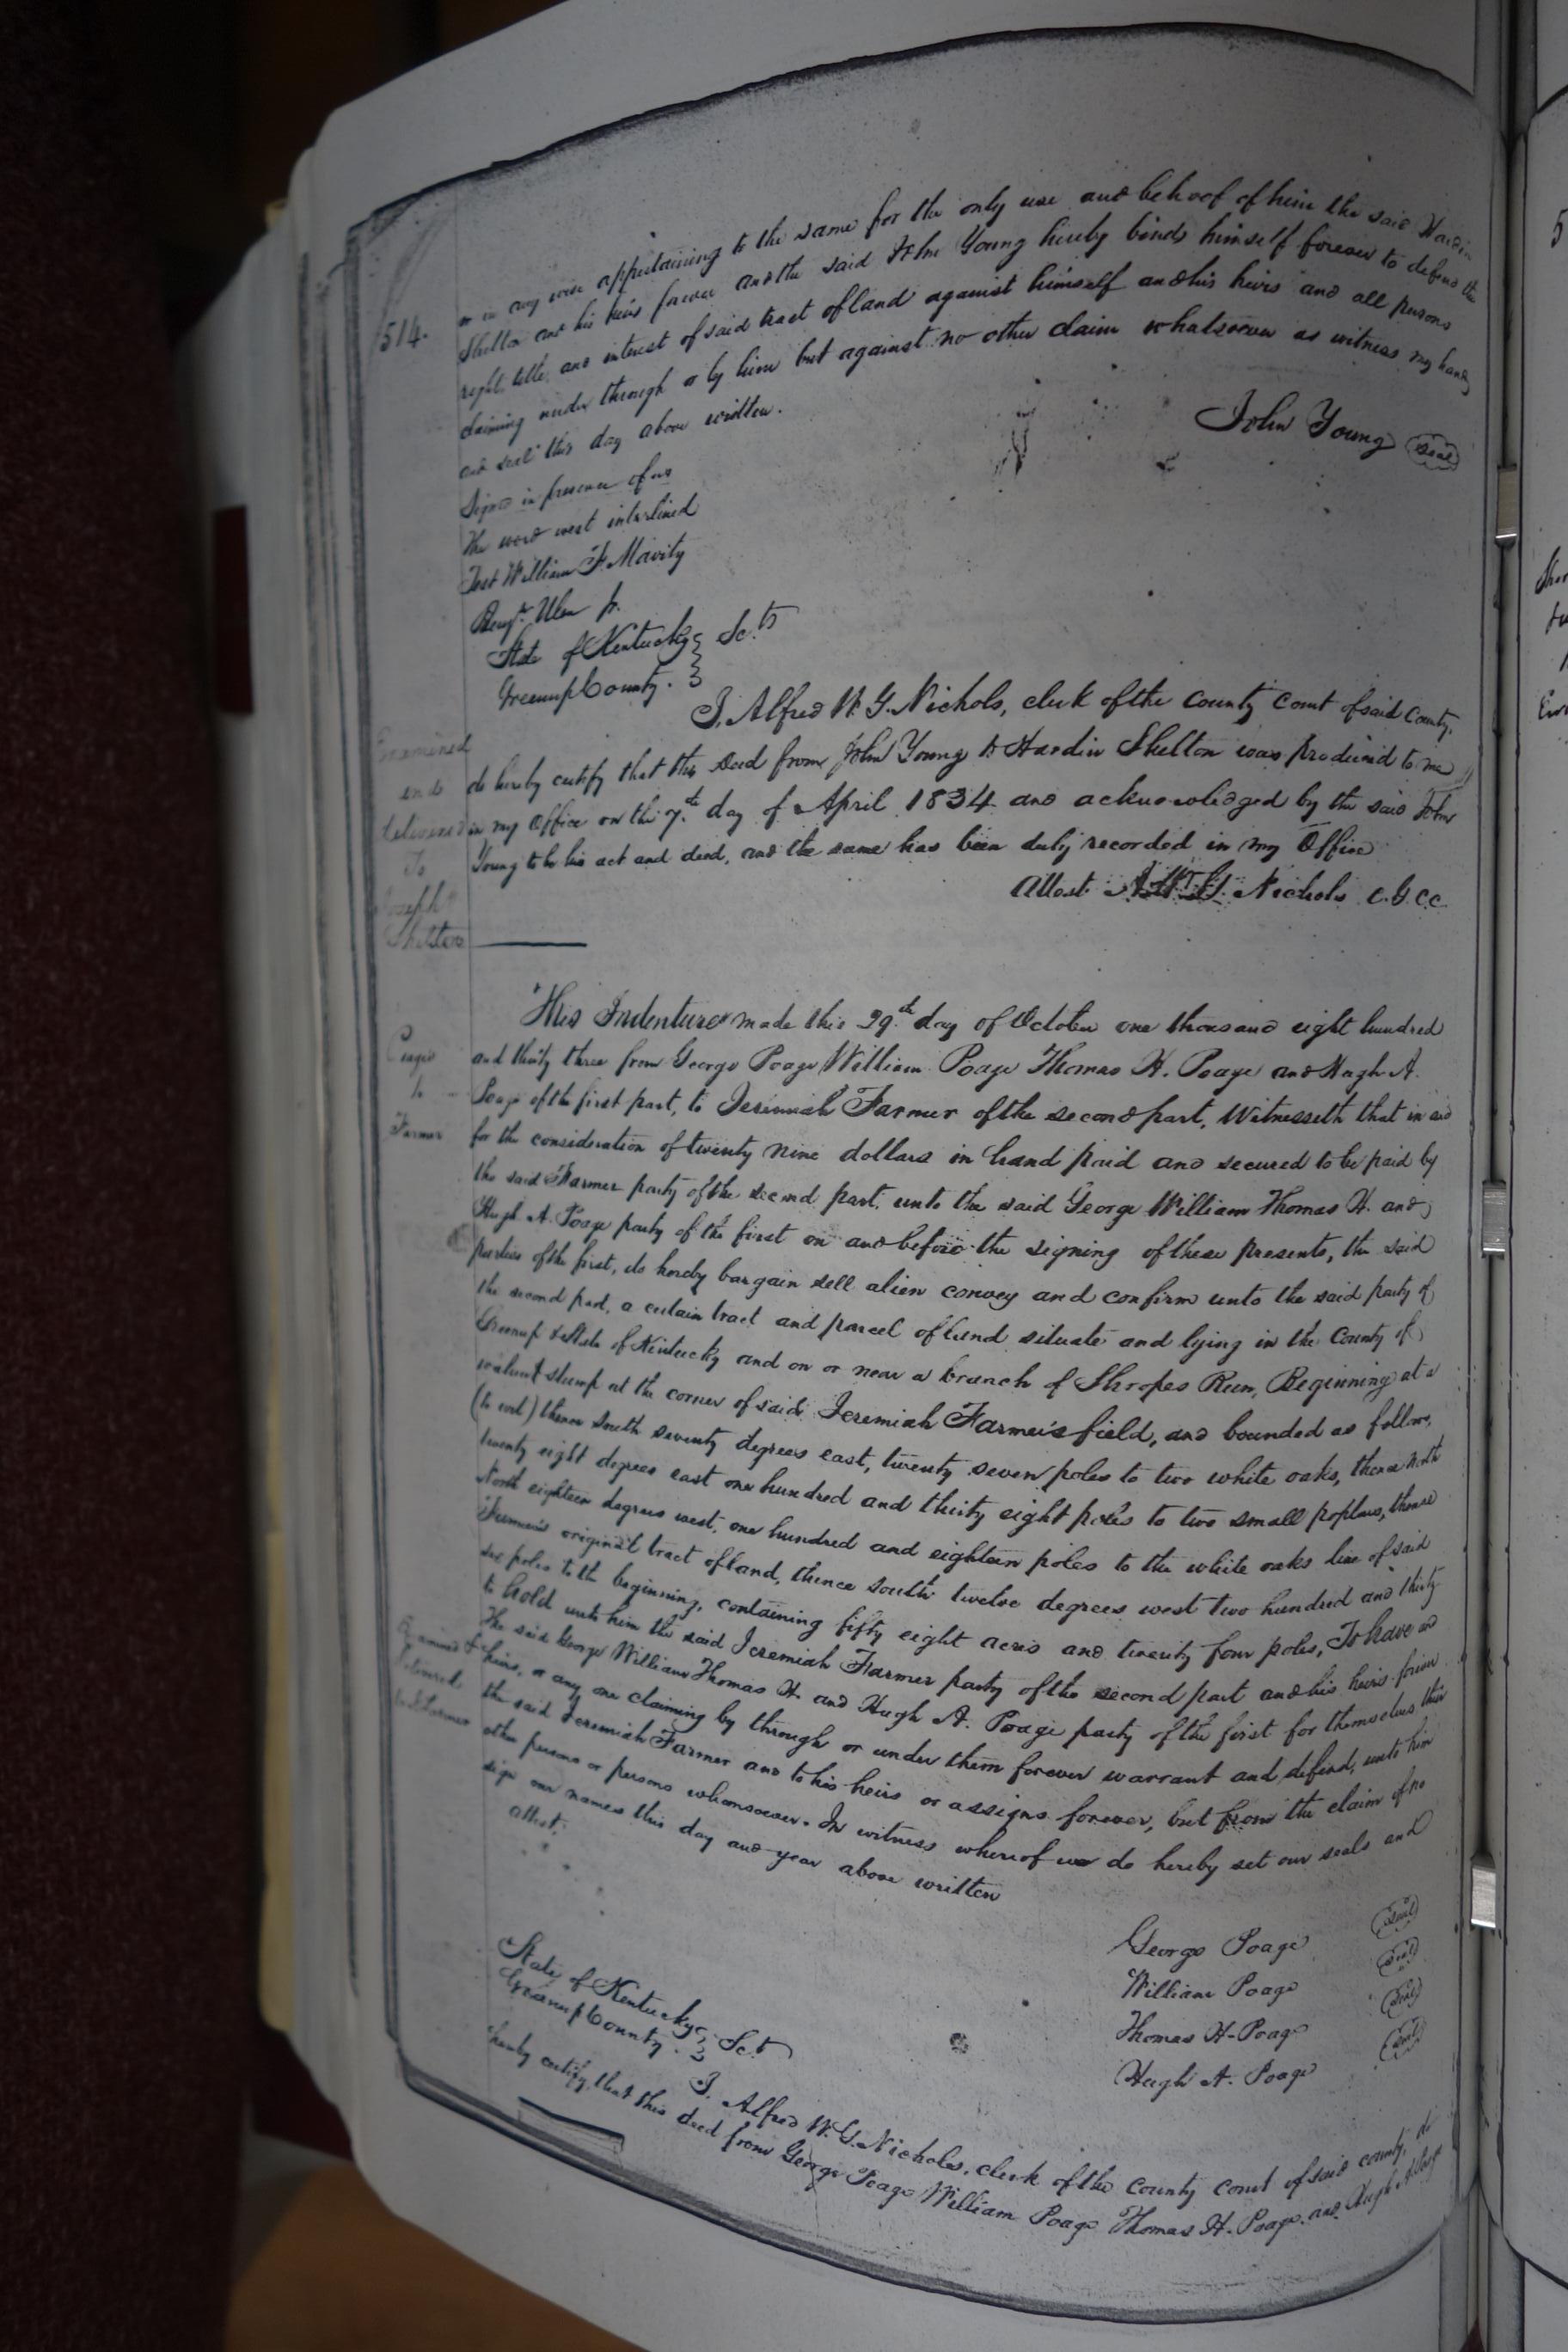 514.
or in any wise appertaining to the same for the only use and behoof of him the said Hardin
Shelton and his heirs forever and the said John Young hereby binds himself forever to defend the
right title and interest of said tract of land against himself and his heirs and all persons
claiming under through or by him but against no other claim whatsoever as witness my hand
and seal this day above written.
John Young Seal
Signed in presence of us
The word west interlined
Test William F. Mavity
Benjn. Ulen jr.
State of Kentucky
Greenup County. Sct.
I, Alfred W. G. Nichols, clerk of the county court of said county,
do hereby certify that this deed from John Young to Hardin Shelton was produced to me
in my office on the 7th day of April 1834 and acknowledged by the said John
Young to be his act and deed, and the same has been duly recorded in my Office
Attest A. W. G. Nichols C.G.C.C.
Examined
and
delivered
To
Joseph
Shelton
This Indenture made this 29th day of October one thousand eight hundred
and thirty three from George Poage William Poage Thomas H. Poage and Hugh A.
Poage of the first part, to Jeremiah Farmer of the second part, Witnesseth that in and
for the consideration of twenty nine dollars in hand paid and secured to be paid by
the said Farmer party of the second part, unto the said George William Thomas H. and
Hugh A. Poage party of the first on and before the signing of these presents, the said
parties of the first, do hereby bargain sell alien convey and confirm unto the said party of
the second part, a certain tract and parcel of land situate and lying in the County of
Greenup & State of Kentucky and on or near a branch of Shropes Run, Beginning at a
walnut stump at the corner of said Jeremiah Farmer's field, and bounded as follows,
(to wit) thence South seventy degrees east, twenty seven poles to two white oaks, thence North
twenty eight degrees east one hundred and thirty eight poles to two small poplars, thence
North eighteen degrees west, one hundred and eighteen poles to the white oaks line of said
Farmer's original tract of land, thence south twelve degrees west two hundred and thirty
six poles to the beginning, containing fifty eight acres and twenty four poles, To have and
to hold unto him the said Jeremiah Farmer party of the second part and his heirs forever
The said George William Thomas H. and Hugh A. Poage party of the first for themselves their
heirs, or any one claiming by through or under them forever warrant and defend, unto him
the said Jeremiah Farmer and to his heirs or assigns forever, but from the claim of no
other persons or persons whomsoever. In witness whereof we do hereby set our seals and
sign our names this day and year above written
Attest.
Poage
to
Farmer
Examined &
Delivered
Farmer
George Poage Seal
William Poage Seal
Thomas H. Poage Seal
Hugh A. Poage Seal
State of Kentucky
Greenup County. Sct.
I, Alfred W. G. Nichols, clerk of the county court of said county, do
hereby certify, that this deed from George Poage William Poage Thomas H. Poage and Hugh A. Poage